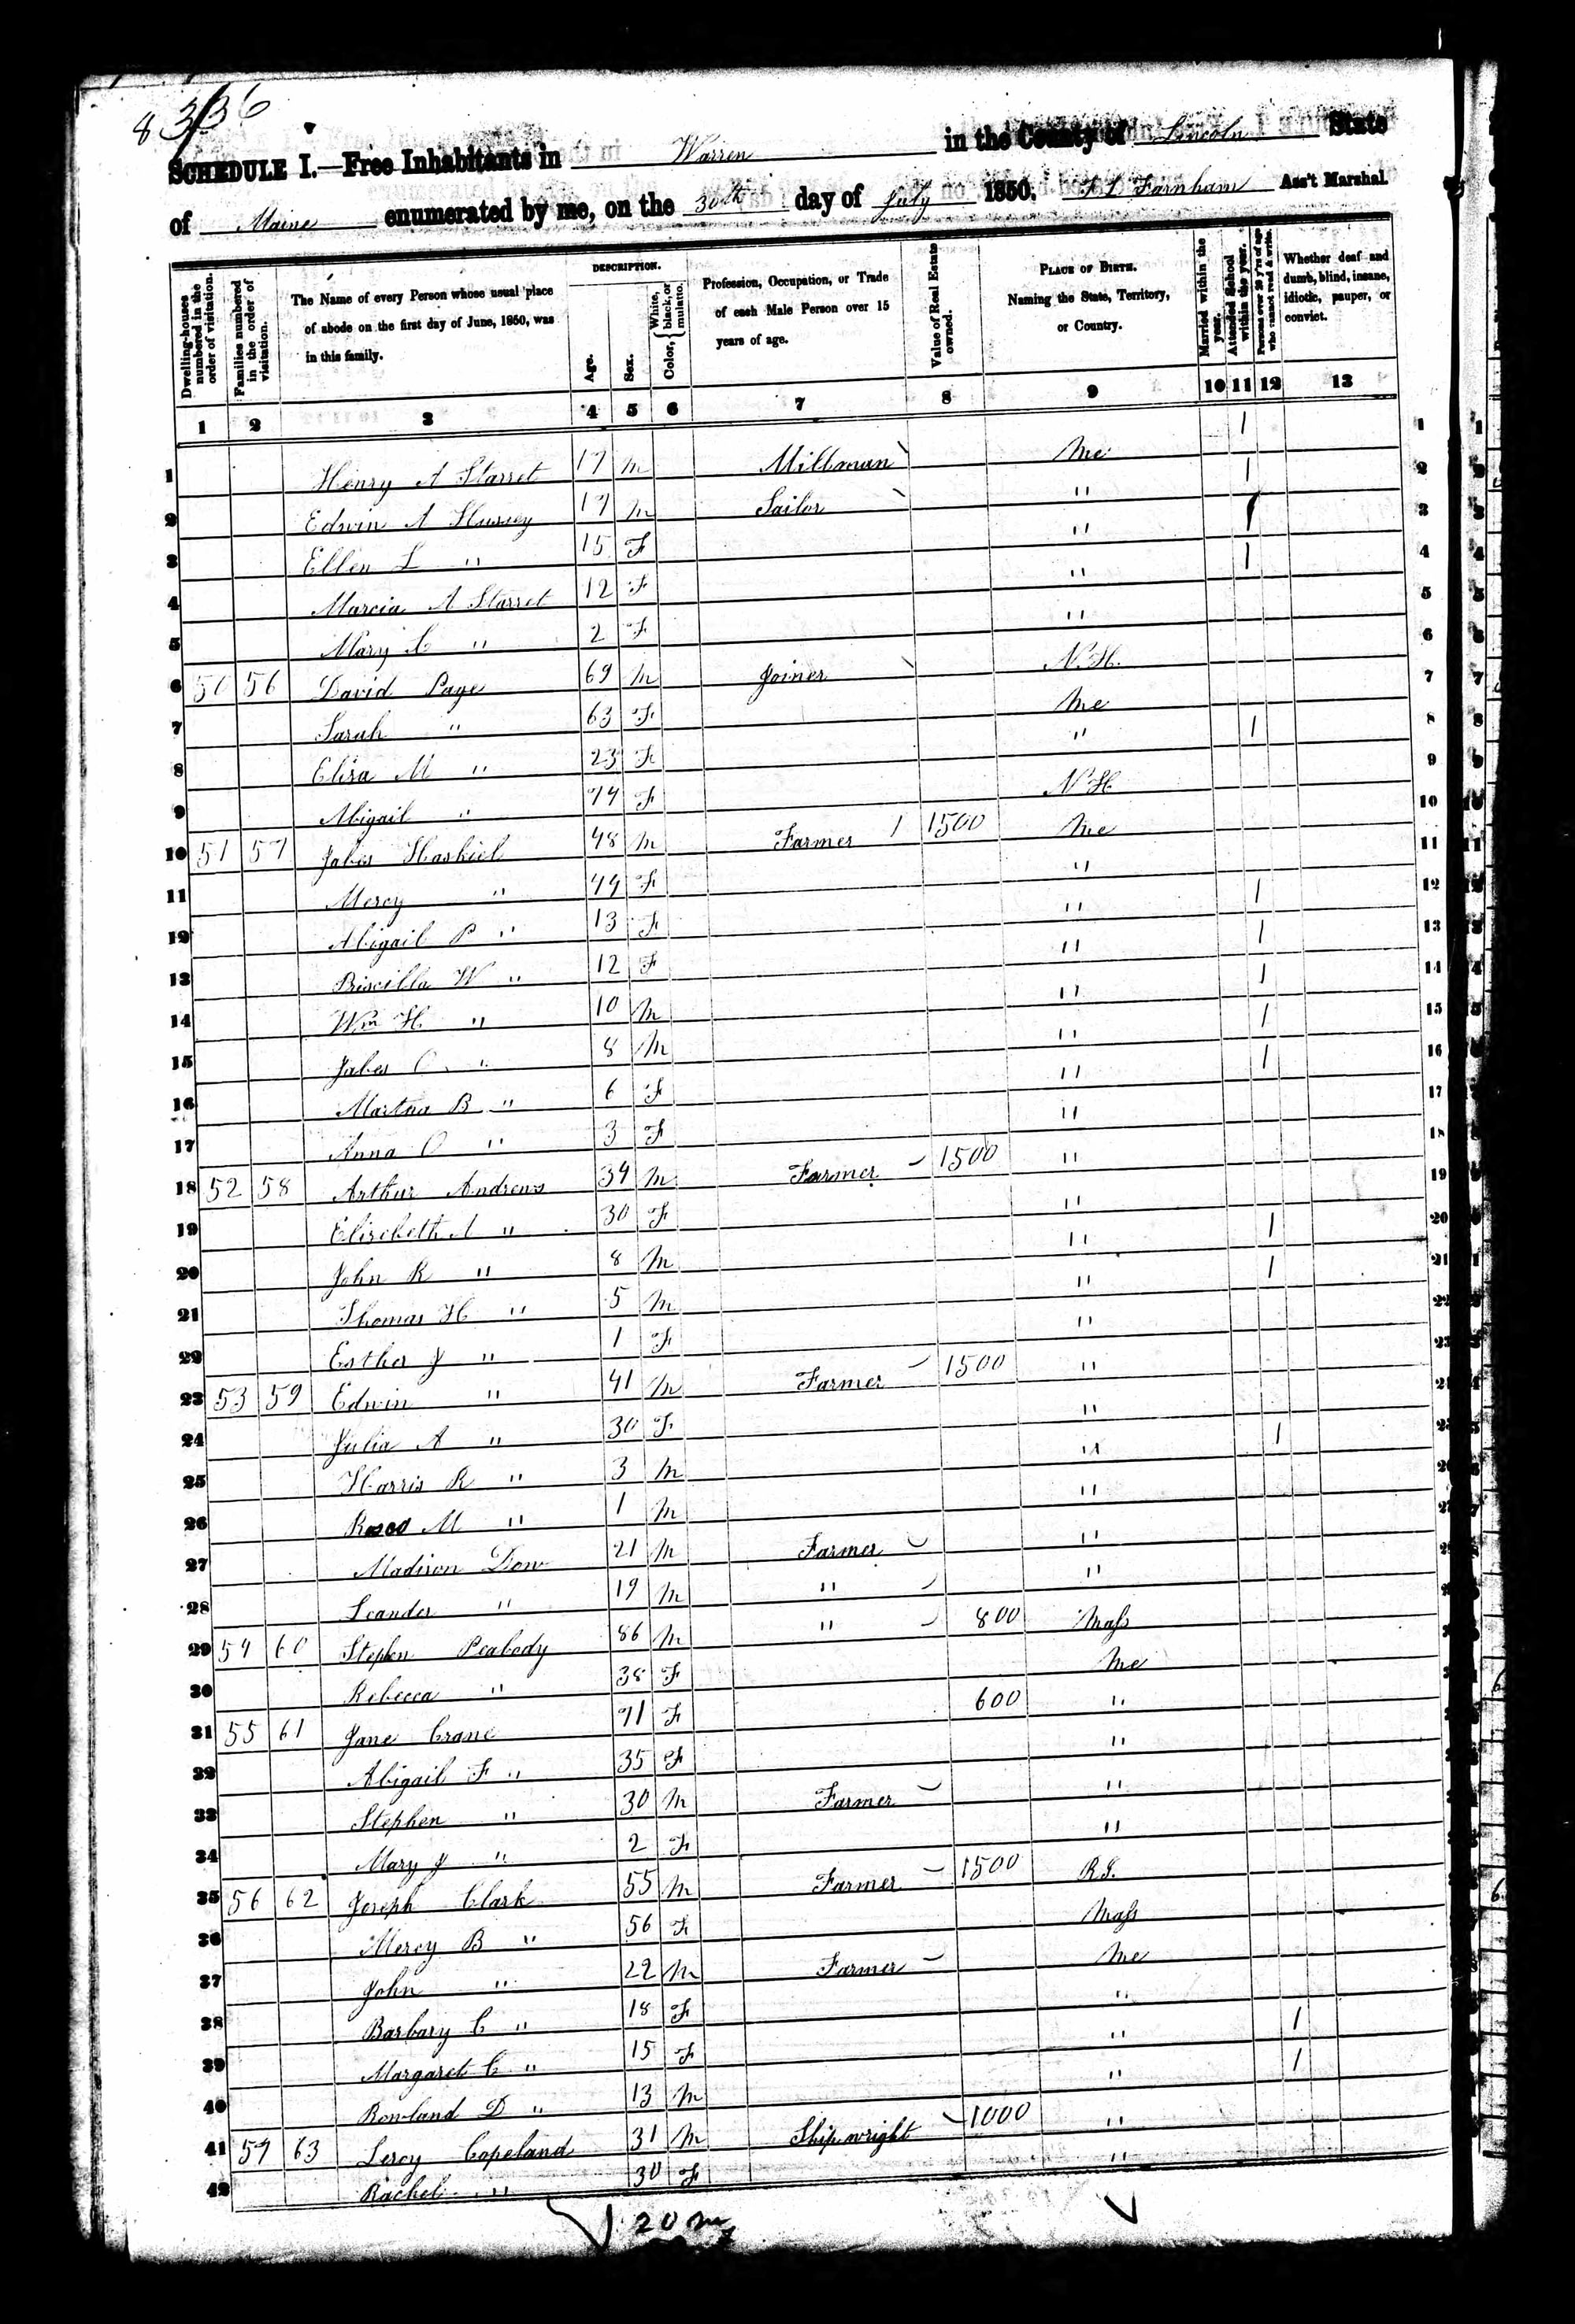 8336
SCHEDULE I.—Free Inhabitants in Warren in the County of Lincoln State
of Maine enumerated by me, on the 30th day of July 1850. Farnham Ass't Marshal.
Dwelling-houses numbered in the order of visitation.
Families numbered in the order of visitation.
The Name of every Person whose usual place of abode on the first day of June, 1850, was in this family.
DESCRIPTION.
Age.
Sex.
Color, { White, black, or mulatto.
Profession, Occupation, or Trade of each Male Person over 15 years of age.
Value of Real Estate owned.
PLACE OF BIRTH. Naming the State, Territory, or Country.
Married within the year.
Attended School within the year.
Persons over 20 y'rs of age who cannot read & write.
Whether deaf and dumb, blind, insane, idiotic, pauper, or convict.
1 2 3 4 5 6 7 8 9 10 11 12 13
1 Henry A Starret 17 M Millman Me 1 1
2 Edwin A Hussey 17 M Sailor " 1 2
3 Ellen L " 15 F " 1 3
4 Marcia A Starret 12 F " 1 4
5 Mary " 2 F " 5
6 50 56 David Page 69 M Joiner N.H. 6
7 Sarah " 63 F Me 7
8 Eliza M " 23 F " 1 8
9 Abigail " 74 F N H 9
10 51 57 Jabes Haskiel 48 M Farmer 1 1500 Me 10
11 Mercy " 44 F " 11
12 Abigail P " 13 F " 1 12
13 Priscilla W " 12 F " 1 13
14 Wm H " 10 M " 1 14
15 Jabes O " 8 M " 1 15
16 Martha B " 6 F " 1 16
17 Anna O " 3 F " 17
18 52 58 Arthur Andrews 34 M Farmer 1500 " 18
19 Elizebeth A " 30 F " 19
20 John R " 8 M " 1 20
21 Thomas H " 5 M " 1 21
22 Esther J " 1 F " 22
23 53 59 Edwin " 41 M Farmer 1500 " 23
24 Julia A " 30 F "
25 Harris R " 3 M " 1
26 Rosco M " 1 M "
27 Madison Dow 21 M Farmer "
28 Leander " 19 M " "
29 54 60 Stephen Peabody 86 M " 800 Mass
30 Rebecca " 38 F Me
31 55 61 Jane Crane 71 F 600 "
32 Abigail F " 35 F "
33 Stephen " 30 M Farmer "
34 Mary J " 2 F "
35 56 62 Joseph Clark 55 M Farmer 1500 R.I.
36 Mercy B " 56 F Mass
37 John " 22 M Farmer Me
38 Barbary C " 18 F "
39 Margaret C " 15 F " 1
40 Rowland D " 13 M " 1
41 57 63 Leroy Copeland 31 M Shipwright 1000 "
42 Rachel " 30 F "
20 m